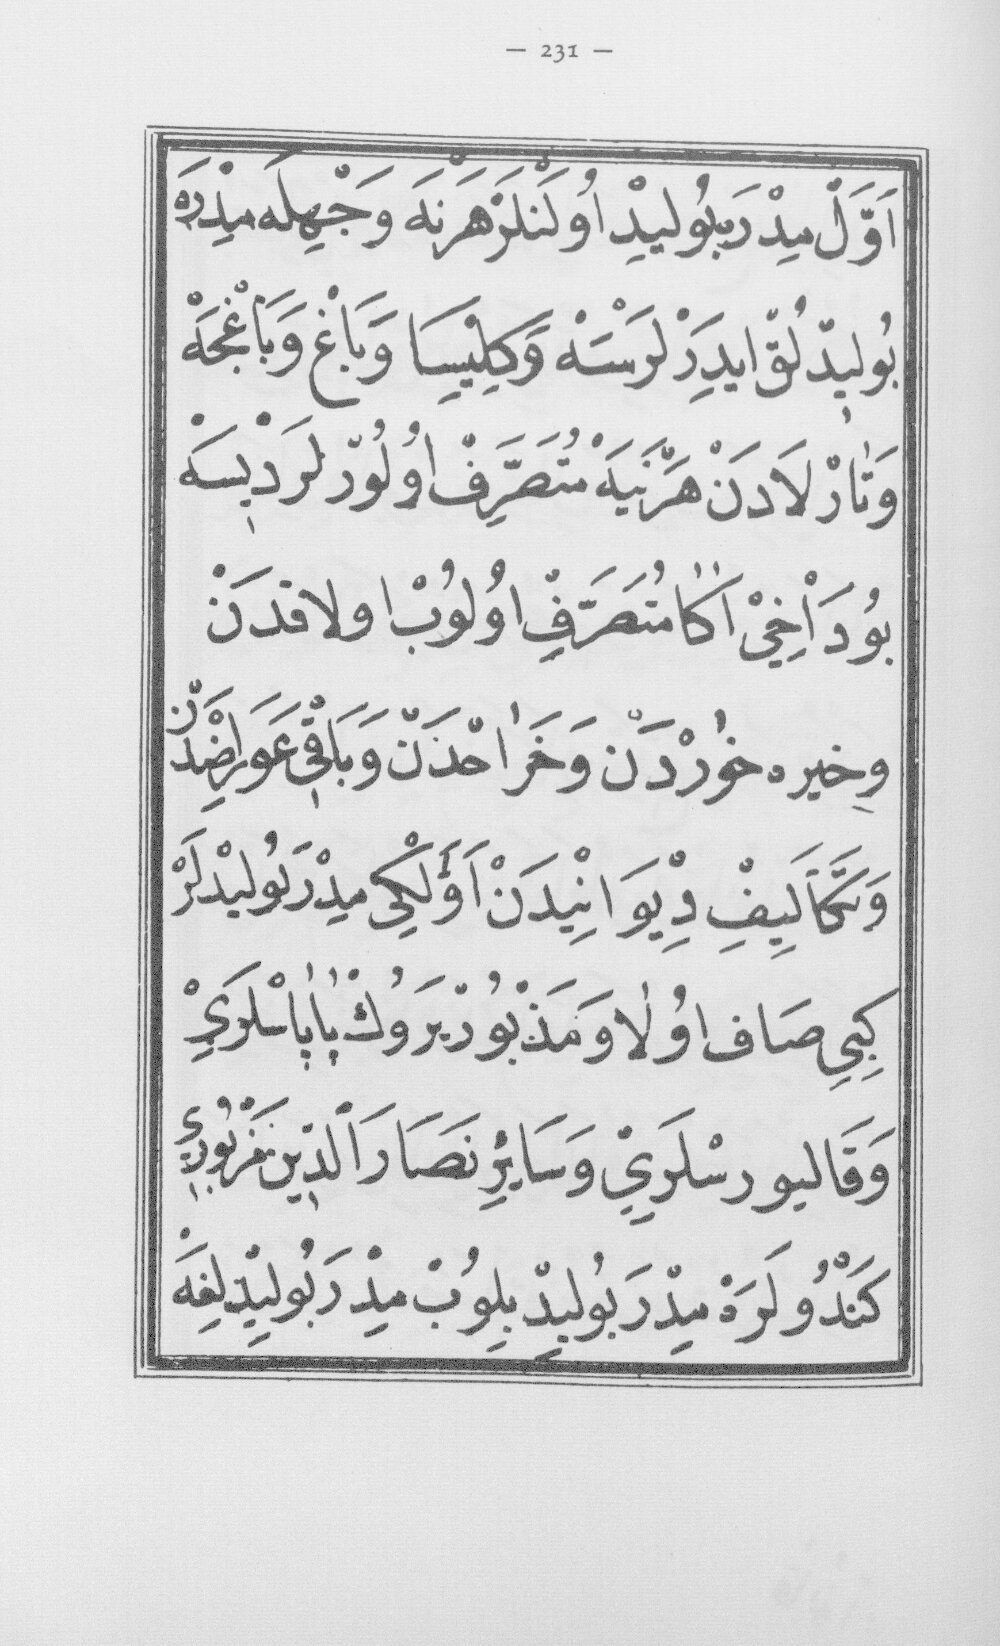 — 231 —
اَوَّلْ مِدْرَبُولِيدْ اُولَنْلَرْ هَرْنَهَ وَجْهِلَه مِدْرَه
بُولِيدْ لُقْ ايدَرْلَرْسَهْ وَكِلِيسَا وَبَاغْ وَبَاغْچَهْ
وَتَارْلَادَنْ هَرْنَيَهْ مُتَصَرِّفْ اُولُورْلَرْدِيسَهْ
بُودَاخِيْ اَكَا مُتَصَرِّفْ اُولُوبْ اولاقدَنْ
وخيره خُورْدَنْ وَخَرَاحْدَنْ وَبَاقِي عَوَارِضْدَنْ
وَتَكَالِيفِ دِيوَانِيدَنْ اَوَّلْكِي مِدْرَبُولِيدْلَرْ
كِبِي صَاف اُولَا وَمَذْبُورْ يَرَوُكْ پَاپَاسْلَرِيْ
وَقَاليورسْلَرِيْ وَسَايِرِ نَصَارَالَّدِينْ مَزْبُورِي
كَنْدُولَرَهْ مِدْرَبُولِيدْ بِلِوُبْ مِدْرَبُولِيدْلِغَهْ